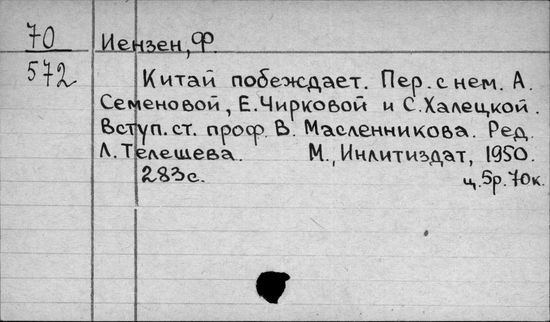 70 Иензен, Ф.
572 Китай побеждает. Пер. с нем. А.
Семеновой, Е. Чирковой и С. Халецкой.
Вступ. ст. проф. В. Масленникова. Ред.
Л. Телешева. М., Инлитиздат, 1950.
283с. ц. 5р. 70к.